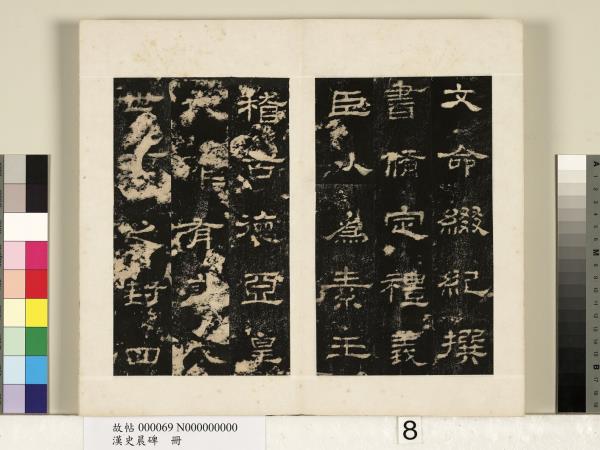 文命綴紀撰
書脩定禮義
臣以為素王
稽古德亞皇
代雖有
世享之封四
故帖 000069 N000000000
漢史晨碑 冊
8